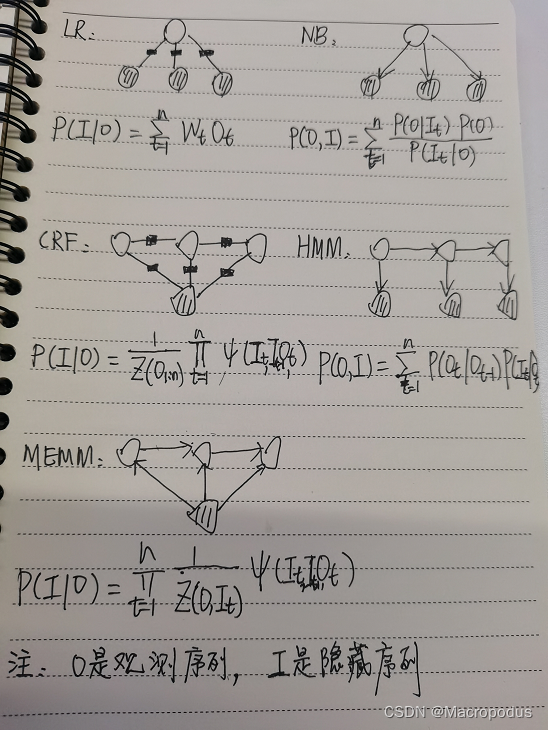 LR: NB:
P(I|O) = \sum_{t=1}^{n} W_t O_t P(O,I) = \sum_{t=1}^{n} \frac{P(O|I_t) P(O)}{P(I_t|O)}
CRF: HMM:
P(I|O) = \frac{1}{Z(O_{1:n})} \prod_{t=1}^{n} ψ(I_t, I, O_t) P(O,I) = \sum_{t=1}^{n} P(O_t|O_{t-1}) P(I_t|O_t
MEMM:
P(I|O) = \prod_{t=1}^{n} \frac{1}{Z(O,I_t)} ψ(I_t, I, O_t)
注: O是观测序列, I是隐藏序列
CSDN @Macropodus